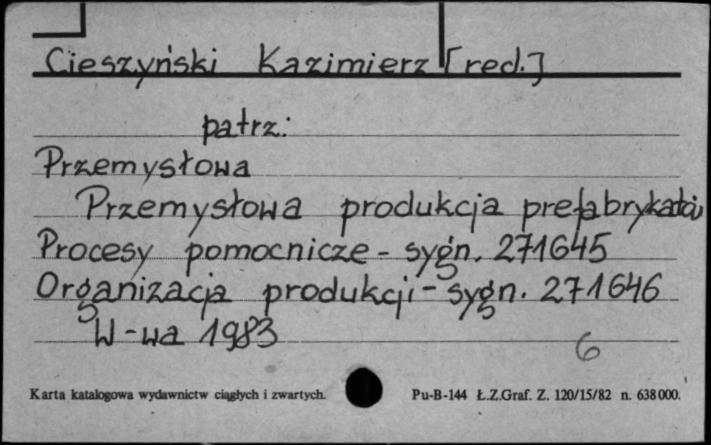 Cieszyński Kazimierz [red.]
patrz:
Przemysłowa
Przemysłowa produkcja prefabrykatów
Procesy pomocnicze - sygn. 271645
Organizacja produkcji - sygn. 271646
W-wa 1983
6
Karta katalogowa wydawnictw ciągłych i zwartych.
Pu-B-144 Ł.Z.Graf. Z. 120/15/82 n. 638000.